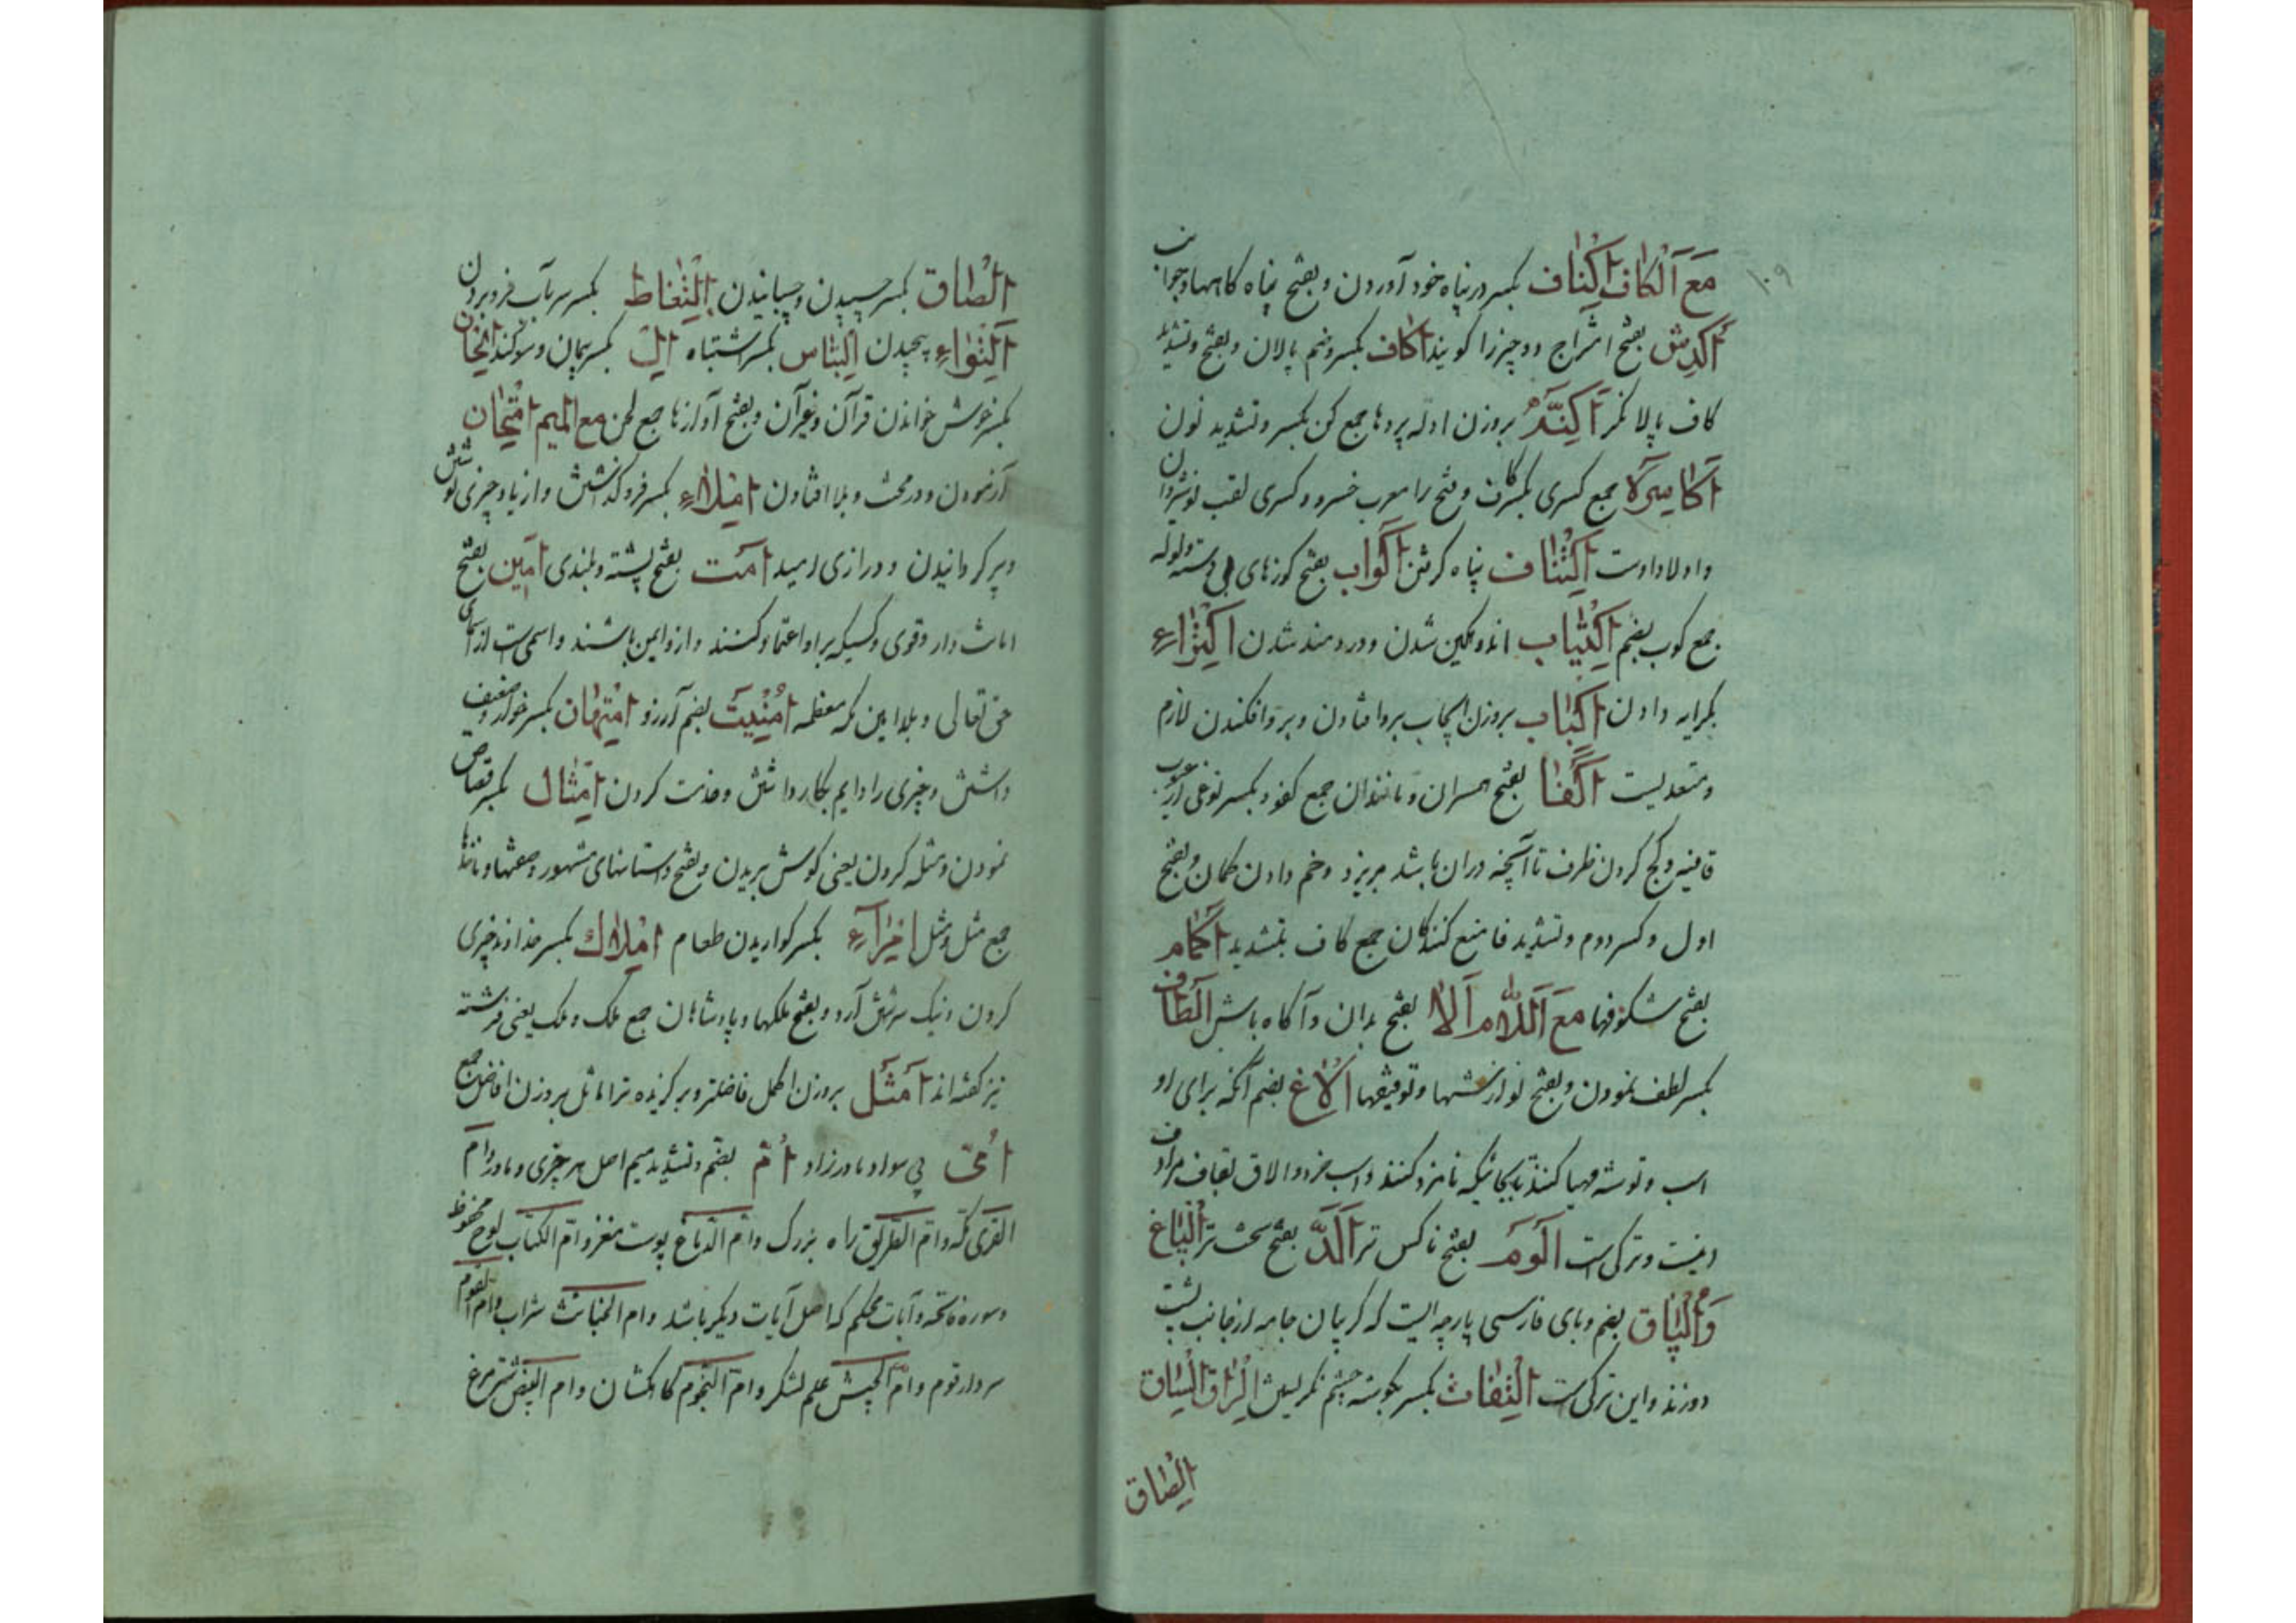 ۱۰۹
مَعَ اَلْکاف اِکْناف بکسر در پناه خود آوردن و بفتح پناه کاهها و جوانب
اَکدِش بفتح امتزاج دو چیز را کویند اکاف بکسر و ضم پالان و بفتح و تشدید
کاف پالانکر اَکِنَّه بروزن ادله پردها جمع کن بکسر و تشدید نون
اَکاسِره جمع کسری بکسر کاف و فتح را معرب خسرو و کسری لقب نوشیروان
و اولاد اوست اِکْتِناف پناه کرفتن اَکواب بفتح کوزهای بی دسته و لوله
جمع کوب بضم اِکْتِیاب اندوهکین شدن و دردمند شدن اِکْتِراء
بکرایه دادن اِکْباب بروزن ایجاب بروافتادن و بروافکندن لازم
و متعدیست اَکْفا بفتح همسران و مانندان جمع کفو و بکسر نوعی از عیوب
قافیه و کج کردن ظرف تا آنچه در آن باشد بریزد و خم دادن کمان و بفتح
اول و کسر دوم و تشدید فا منع کنندکان جمع کاف بتشدید اَکمام
بفتح شکوفها مَعَ اَللّام اَلا بفتح بدان و آکاه باش اَلطاف
بکسر لطف نمودن و بفتح نوازشها و توفیقها اُلاغ بضم آنکه برای او
اسب و توشه مهیا کنند تا بجائیکه نامزد کنند و اسب مزد و الاق بقاف مرادف
اینست و ترکی است اَلوَم بفتح ناکس تر اَلَدّ بفتح سخت تر اُلپاغ
وَ اُلپاق بضم و بای فارسی پارچه ایست که کریبان جامه از جانب پشت
دوزند و این ترکی است اِلْتِفات بکسر بکوشه چشم نکریستن اِلزاق اِلساق
اِلصاق
اِلصاق بکسر چسپیدن و چسپانیدن اِلْتِغاط بکسر سر بآب فرو بردن
اِلْتِواء پیچیدن اِلتباس بکسر اشتباه اِلّ بکسر پیمان و سوکند الحان
بکسر خوش خواندن قرآن و غیر آن و بفتح آوازها جمع لحن مع المیم امتحان
آزمودن و در محنت و بلا افتادن اِملاء بکسر فرو کذاشتن و از یاد چیزی نوشتن
و پر کردانیدن و درازی امید اَمت بفتح پشته و بلندی اَمین بفتح
امانت دار و قوی و کسیکه بر او اعتماد کنند و ازو ایمن باشند و اسمی است از اسمای
حق تعالی و بلد امین مکه معظمه اُمنیت بضم آرزو اِمتهان بکسر خوار و ضعیف
داشتن و چیزی را دایم بکار داشتن و خدمت کردن اِمتثال بکسر قصاص
نمودن و مثله کردن یعنی کوش بریدن و بفتح داستانهای مشهور و صفتها و مانندها
جمع مثل و مثل اِمراء بکسر کواریدن طعام اِملاک بکسر خداوند چیزی
کردن و نیک سرشتن آرد و بفتح ملکها و پادشاهان جمع ملک و ملک یعنی فرشته
نیز کفته اند اَمثل بروزن اکمل فاضلتر و برکزیده تر اماثل بروزن افاضل جمع
اُمّی بی سواد مادرزاد اُمّ بضم و تشدید میم اصل هر چیزی و مادر و ام
القری مکه و ام الطریق راه بزرک و ام الدماغ پوست مغز و ام الکتاب لوح محفوظ
و سوره فاتحه و آیات محکم که اصل آیات دیکر باشد و ام الخبائث شراب و ام القوم
سردار قوم و ام الجیش علم لشکر و ام النجوم کاهکشان و ام البیض شتر مرغ